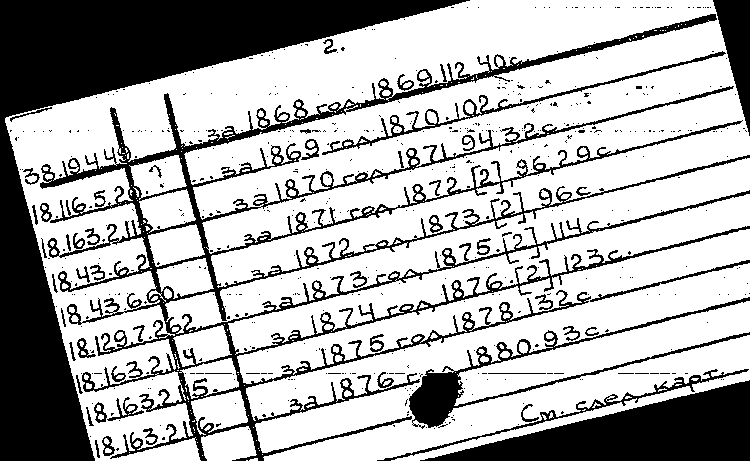 2.
38.19.4.49 ... за 1868 год 1869.112,40с.
18.116.5.20. ? ... за 1869 год 1870.102с.
18.163.2.113. ... за 1870 год 1871.94,32с.
18.43.6.2. ... за 1871 год 1872.[2],96,29с.
18.43.6.60. ... за 1872 год, 1873.[2],96с.
18.129.7.262. ... за 1873 год, 1875.[2],114с.
18.163.2.114. ... за 1874 год, 1876.[2],123с.
18.163.2.115. ... за 1875 год 1878.132с.
18.163.2.116. ... за 1876 год 1880.93с.
См. след карт.